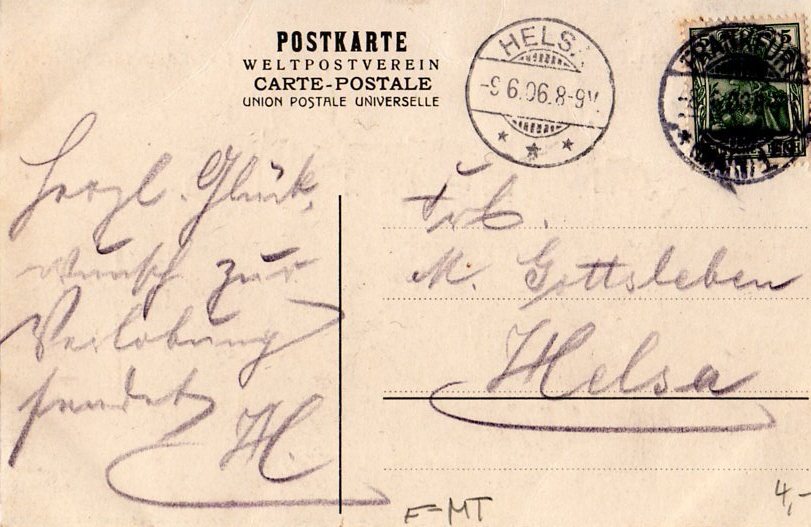 POSTKARTE
WELTPOSTVEREIN
CARTE-POSTALE
UNION POSTALE UNIVERSELLE
HELSA
-9.6.06.8-9V
5
Herzl. Glück
wunsch zur
Verlobung
sendet
H.
Frl.
M. Gottsleben
Helsa
F-MT
4,-